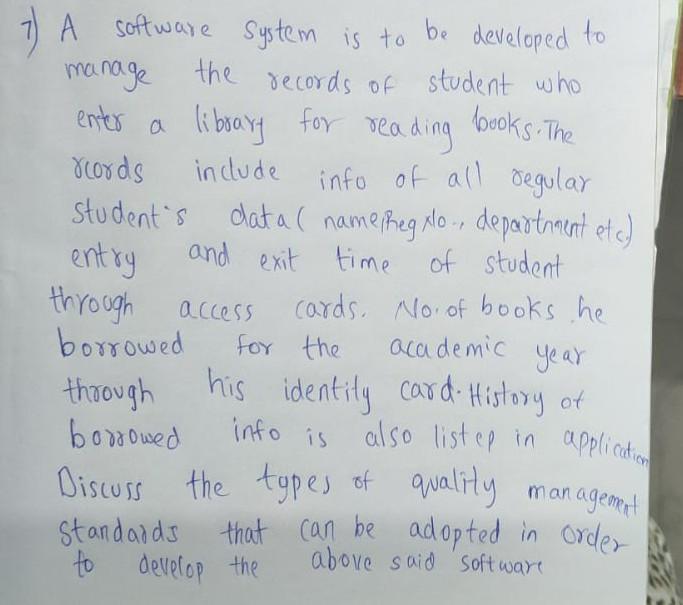 7) A software system is to be developed to
manage the records of student who
enter a library for reading books. The
rcords include info of all regular
student's data ( name, Reg No., department etc)
entry and exit time of student
through access cards. No. of books he
borrowed for the academic year
through his identity card. History of
borrowed info is also listep in application
Discuss the types of quality management
standards that can be adopted in order
to develop the above said software